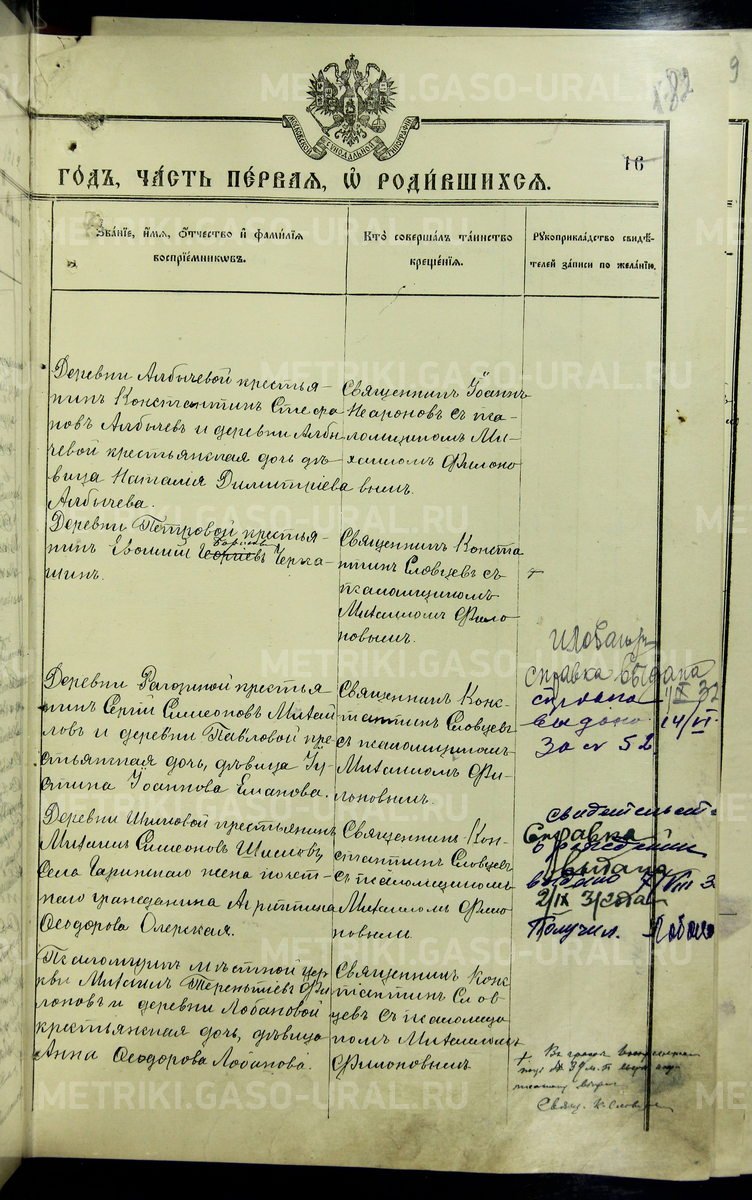 1-82
9
МОСКОВСКОЙ СУНОДАЛЬНОЙ ТИПОГРАФІИ
16
ГОДЪ, ЧАСТЬ ПЕРВАЯ, Ѡ РОДИВШИХСЯ.
Званіе, имя, отчество и фамилія
воспріемниковъ.
Кто совершалъ таинство
крещенія.
Рукоприкладство свидѣ-
телей записи по желанію.
Деревни Албычевой крестья-
нинъ Константинъ Стефа
новъ Албычевъ и деревни Албы
чевой крестьянская дочь дѣ-
вица Наталія Димитріева
Албычева.
Священникъ Іоаннъ
съ пса-
ломщикомъ Ми-
хаиломъ Филоно
вымъ.
Деревни Петровой крестья-
нинъ Евѳимій Георгіевъ Черка-
шинъ.
Священникъ Конста
нтинъ Словцевъ съ
псаломщикомъ
Михаиломъ Фило
новымъ.
Деревни крестья
нинъ Сергій Симеоновъ Михай
ловъ и деревни Павловой кре-
стьянская дочь, дѣвица Іу-
стина Іоаннова Еманова.
Священникъ Конс-
тантинъ Словцевъ
съ псаломщикомъ
Михаиломъ Фи-
лоновымъ.
справка выдана
справка 1/IX 32
выдана 14/VI
за № 52
Деревни крестьянинъ
Михаилъ Симеоновъ
Села Гаринскаго жена почет-
наго гражданина Агриппина
Ѳеодорова
Священникъ Кон-
стантинъ Словцевъ
съ псаломщикомъ
Михаиломъ Фило
новымъ.
Свидетельст-
Справка
о рождении
выдана
Получил.
Псаломщикъ мѣстной цер
кви Михаилъ Терентьевъ Фи
лоновъ и деревни Лобановой
крестьянская дочь, дѣвица
Анна Ѳеодорова Лобанова.
Священникъ Конс
тантинъ Слов
цевъ съ псаломщи
комъ Михаиломъ
Филоновымъ
+ Въ графѣ
Свящ. К. Словцевъ
METRIKI.GASO-URAL.RU